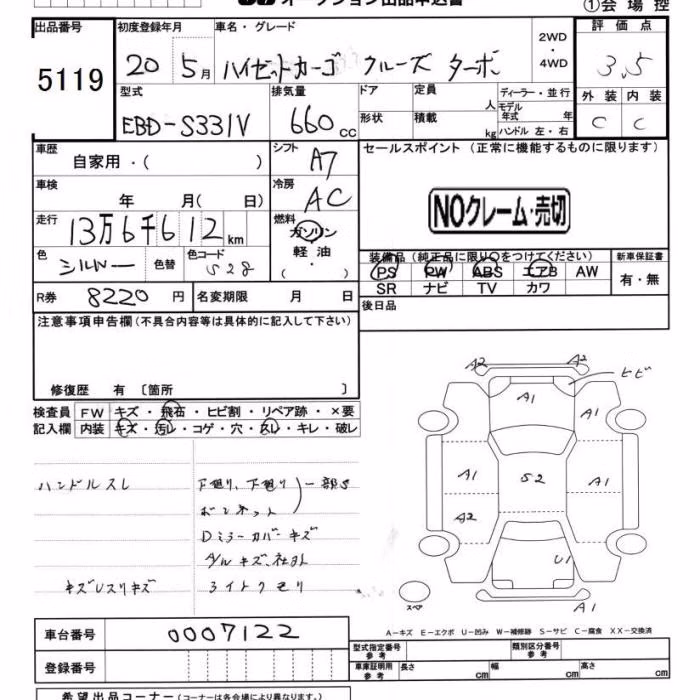 オークション出品申込書
①会場控
出品番号
5119
初度登録年月
20 5月
車名・グレード
ハイゼットカーゴ クルーズ ターボ
2WD
・
4WD
評価点
3.5
型式
EBD-S331V
排気量
660cc
ドア
定員
人
ディーラー・並行
モデル年式 年
形状
積載
kg
ハンドル 左・右
外装 内装
C C
車歴
自家用・( )
シフト
A7
セールスポイント (正常に機能するものに限ります)
車検
年 月( 日)
冷房
AC
NOクレーム・売切
走行
13万6千612km
燃料
ガソリン
軽油
・( )・
色
シルバー
色替
色コード
S28
装備品(純正品に限り○をつけてください)
新車保証書
PS PW ABS エアB AW
SR ナビ TV カワ
有・無
R券 8220円
名変期限 月 日
後日品
注意事項申告欄(不具合内容等は具体的に記入して下さい)
修復歴 有 〔箇所 〕
検査員 FW キズ・飛石・ヒビ割・リペア跡・×要
記入欄 内装 キズ・汚レ・コゲ・穴・スレ・キレ・破レ
ハンドルスレ
下廻り、下廻り 一部S
ボンネット
Dミラーカバーキズ
A/Wキズ、社外
キズUスリキズ
ライトクモリ
A2
A2
ヒビ
A1
A1
A1
S2
A1
A2
U1
スペア
A1
A-キズ E-エクボ U-凹み W-補修跡 S-サビ C-腐食 XX-交換済
車台番号
0007122
型式指定番号
参考
類別区分番号
参考
登録番号
車庫証明用
参考
長さ cm
幅 cm
高さ cm
希望出品コーナー(コーナーは各会場により異なります。)